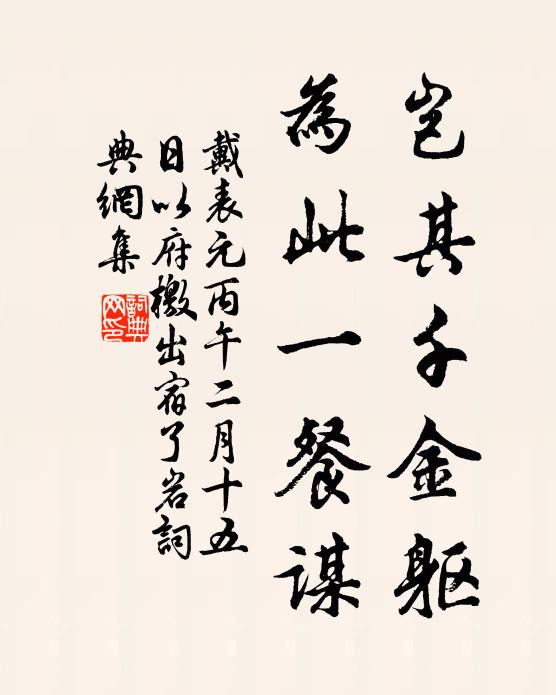 岂其千金躯
為此一餐谋
戴表元丙午二月十五
日以府檄出宿了岩詞
典網集
詞典
网印